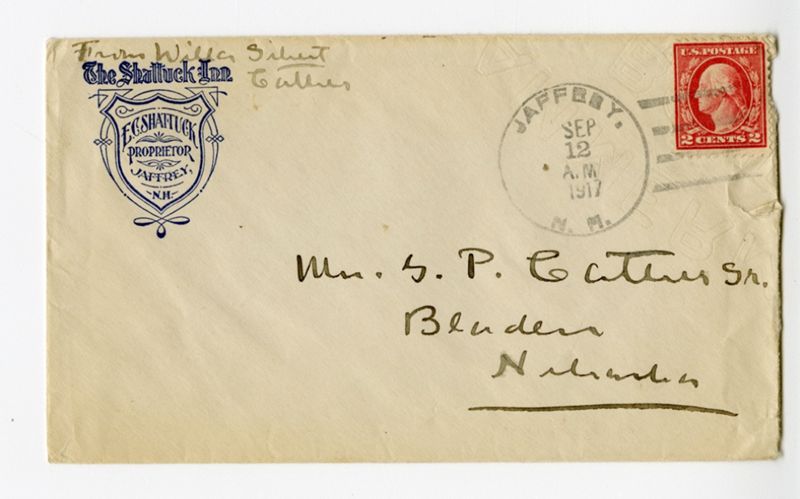 From Willa Sibert
Cather
The Shattuck Inn
E.C. SHATTUCK
PROPRIETOR
JAFFREY,
N.H.
U.S. POSTAGE
2 CENTS 2
JAFFREY.
SEP
12
A.M
1917
N. H.
Mrs. G. P. Cather Sr.
Bladen
Nebraska